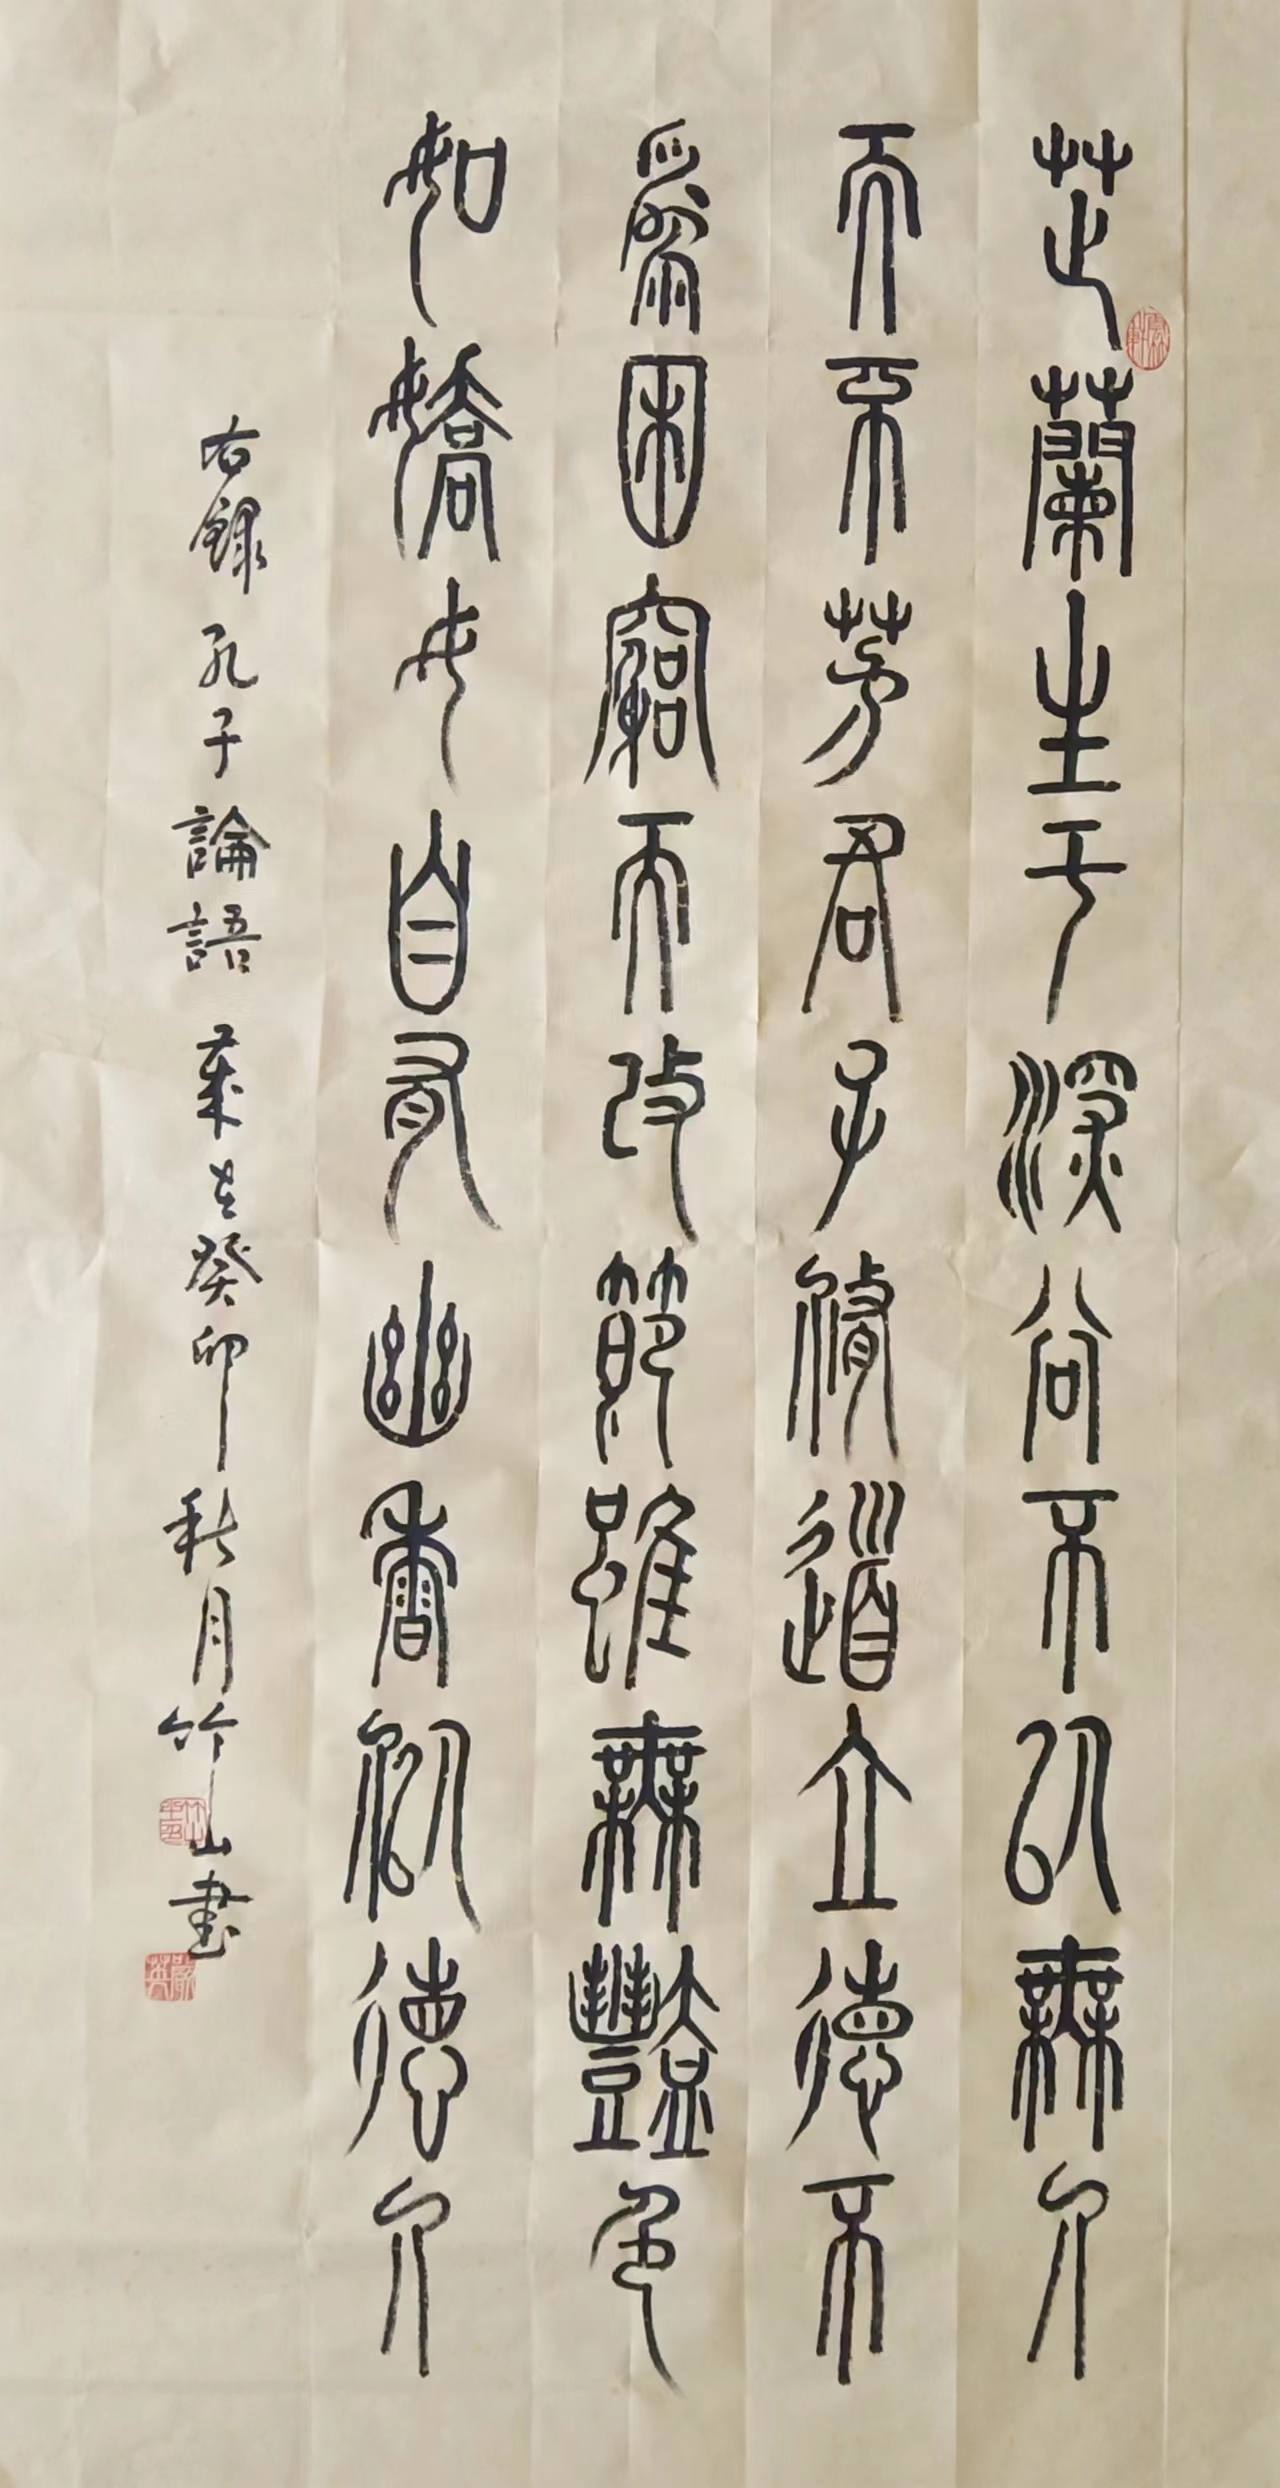 芷蘭生于深谷不以無人
而不芳君子脩道立德不
為困窮而改節雖無豔色
如嬌女自有幽香似德人
右錄孔子論語歲在癸卯秋月竹山書